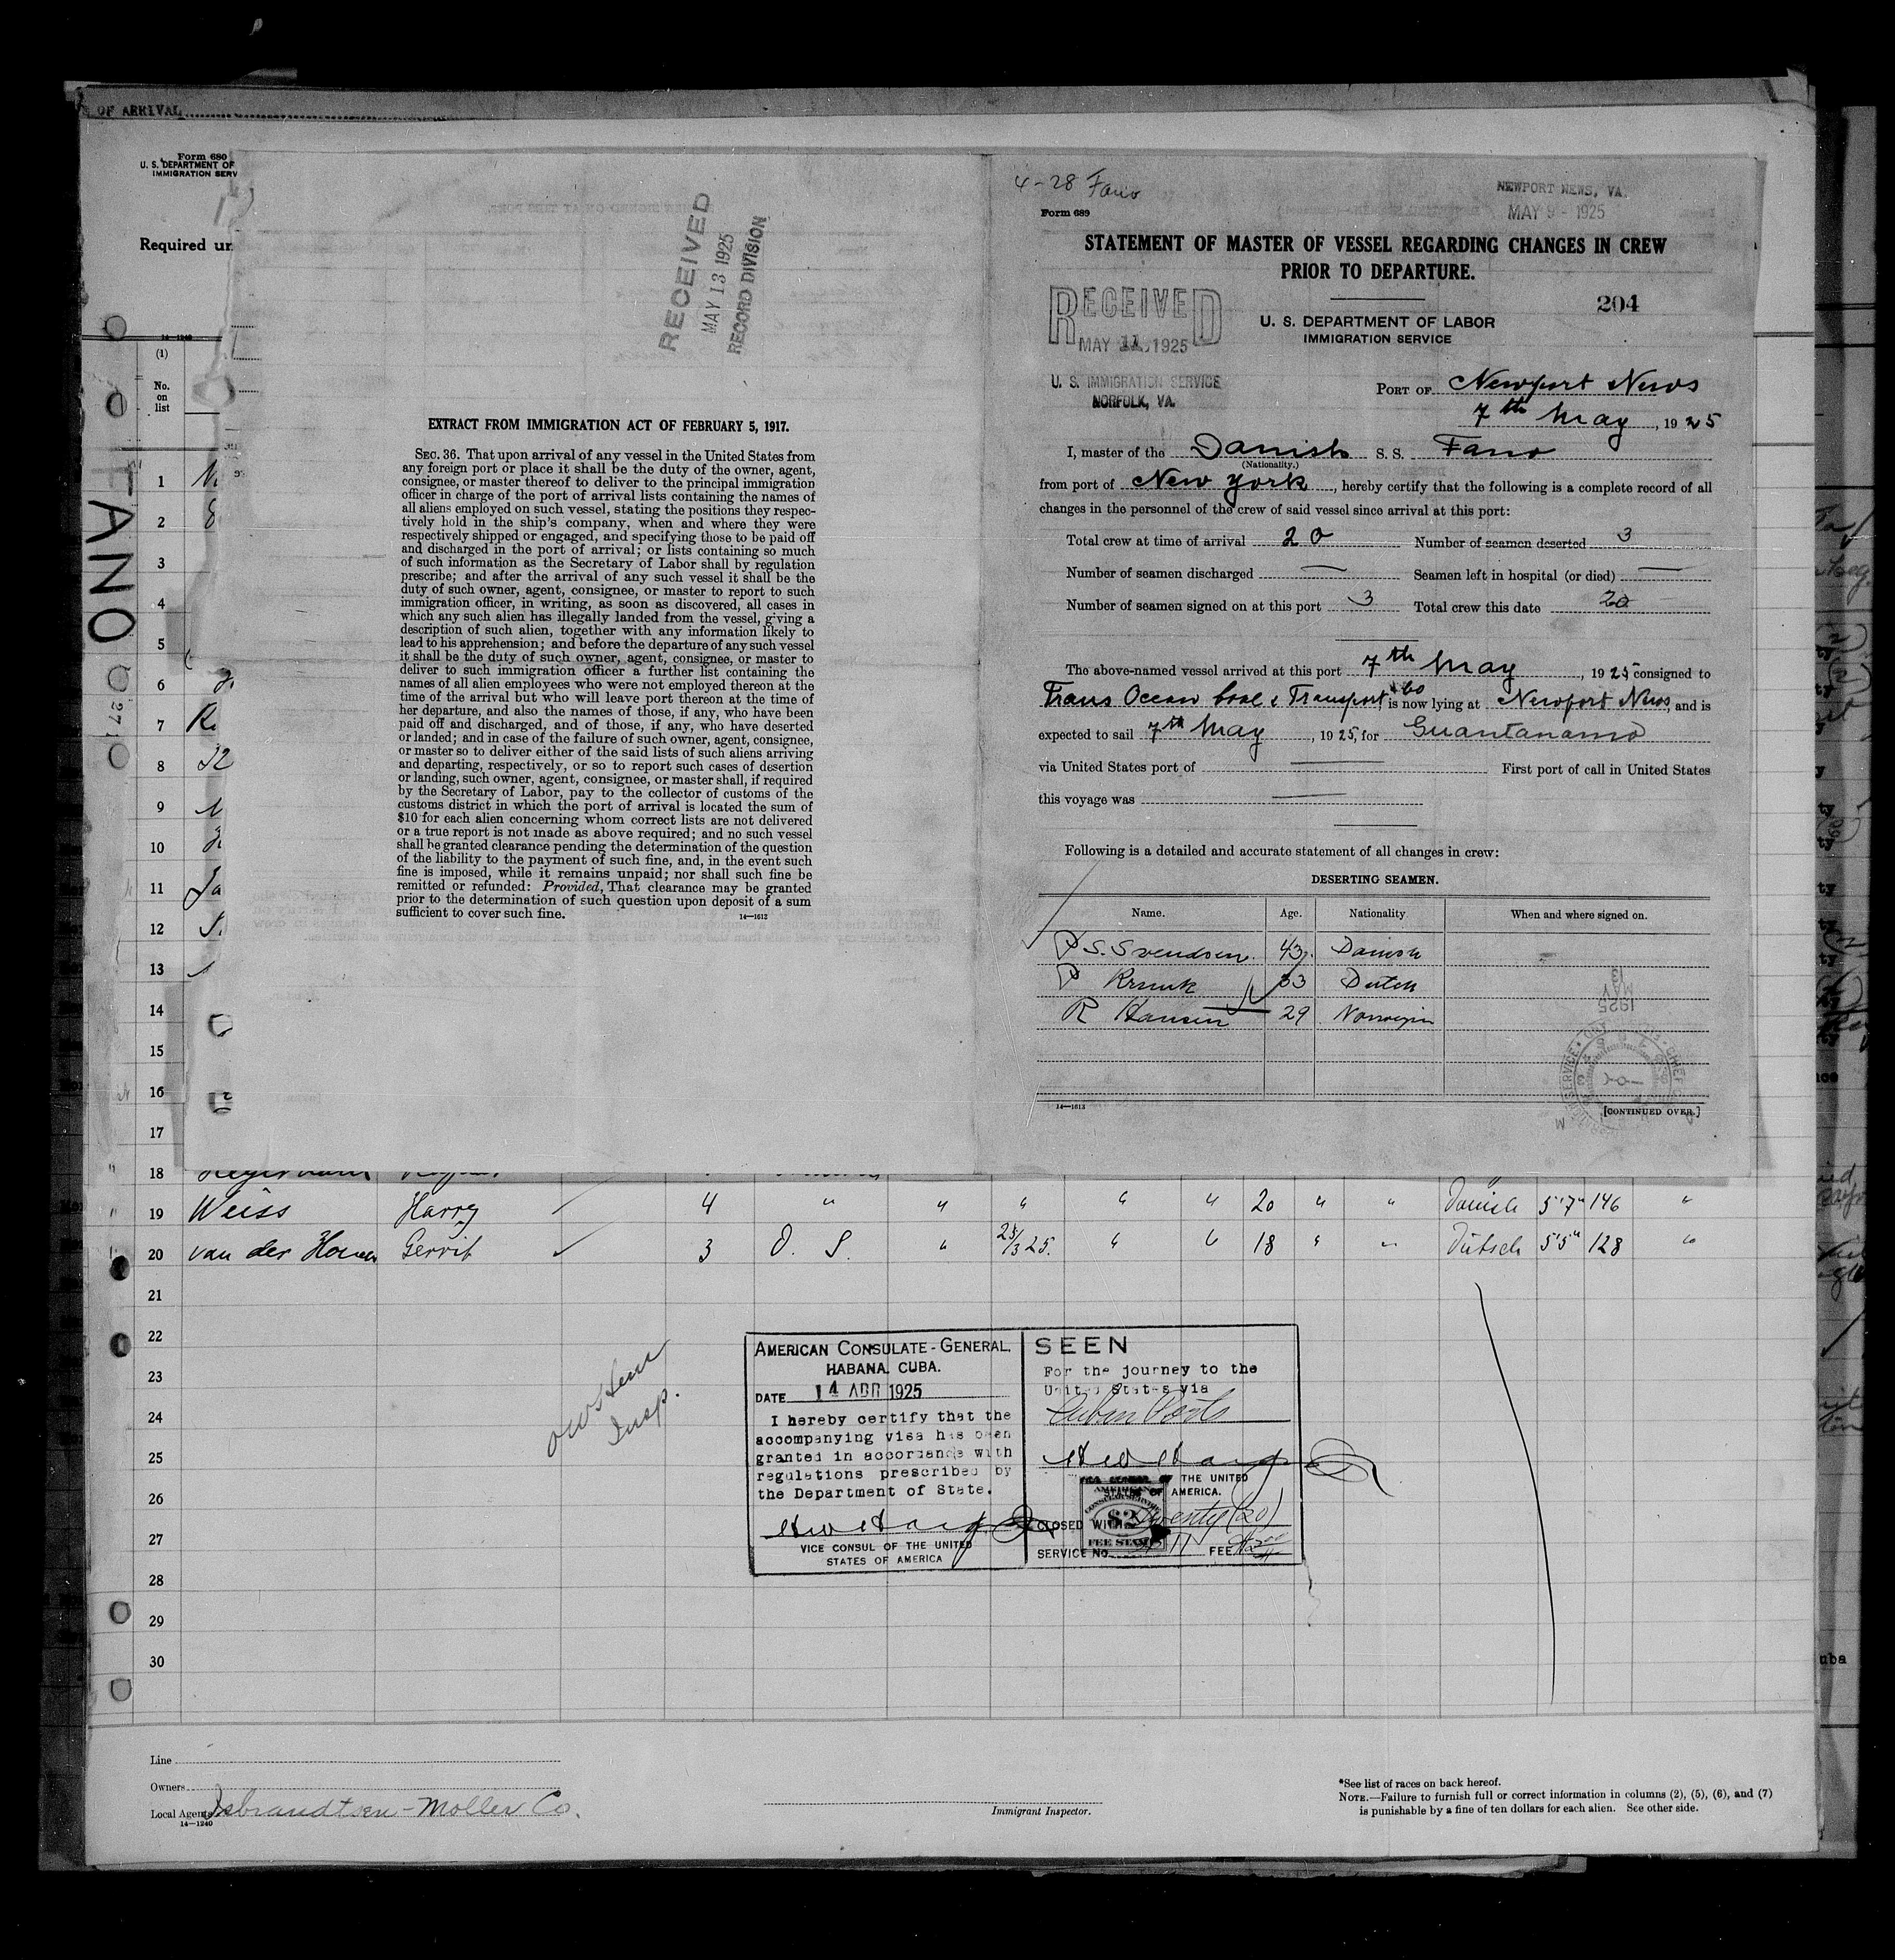 OF ARRIVAL
Form 680
U. S. DEPARTMENT OF
IMMIGRATION SERV
Required un
14—1240
(1)
No.
on
list
FANO
271
1
2
3
4
5
6
7
8
9
10
11
12
13
14
15
16
17
18
RECEIVED
MAY 13 1925
RECORD DIVISION
EXTRACT FROM IMMIGRATION ACT OF FEBRUARY 5, 1917.
SEC. 36. That upon arrival of any vessel in the United States from
any foreign port or place it shall be the duty of the owner, agent,
consignee, or master thereof to deliver to the principal immigration
officer in charge of the port of arrival lists containing the names of
all aliens employed on such vessel, stating the positions they respec-
tively hold in the ship's company, when and where they were
respectively shipped or engaged, and specifying those to be paid off
and discharged in the port of arrival; or lists containing so much
of such information as the Secretary of Labor shall by regulation
prescribe; and after the arrival of any such vessel it shall be the
duty of such owner, agent, consignee, or master to report to such
immigration officer, in writing, as soon as discovered, all cases in
which any such alien has illegally landed from the vessel, giving a
description of such alien, together with any information likely to
lead to his apprehension; and before the departure of any such vessel
it shall be the duty of such owner, agent, consignee, or master to
deliver to such immigration officer a further list containing the
names of all alien employees who were not employed thereon at the
time of the arrival but who will leave port thereon at the time of
her departure, and also the names of those, if any, who have been
paid off and discharged, and of those, if any, who have deserted
or landed; and in case of the failure of such owner, agent, consignee,
or master so to deliver either of the said lists of such aliens arriving
and departing, respectively, or so to report such cases of desertion
or landing, such owner, agent, consignee, or master shall, if required
by the Secretary of Labor, pay to the collector of customs of the
customs district in which the port of arrival is located the sum of
$10 for each alien concerning whom correct lists are not delivered
or a true report is not made as above required; and no such vessel
shall be granted clearance pending the determination of the question
of the liability to the payment of such fine, and, in the event such
fine is imposed, while it remains unpaid; nor shall such fine be
remitted or refunded: Provided, That clearance may be granted
prior to the determination of such question upon deposit of a sum
sufficient to cover such fine.
14—1613
4-28 Fano
NEWPORT NEWS, VA.
MAY 9 - 1925
Form 689
STATEMENT OF MASTER OF VESSEL REGARDING CHANGES IN CREW
PRIOR TO DEPARTURE.
204
RECEIVED
MAY 11 1925
U. S. IMMIGRATION SERVICE
NORFOLK, VA.
U. S. DEPARTMENT OF LABOR
IMMIGRATION SERVICE
PORT OF Newport News
7th May, 1925
I, master of the Danish S. S. Fano
(Nationality.)
from port of New York, hereby certify that the following is a complete record of all
changes in the personnel of the crew of said vessel since arrival at this port:
Total crew at time of arrival 20 Number of seamen deserted 3
Number of seamen discharged — Seamen left in hospital (or died) —
Number of seamen signed on at this port 3 Total crew this date 20
The above-named vessel arrived at this port 7th May, 1925 consigned to
Trans Ocean Coal & Transport Co is now lying at Newport News, and is
expected to sail 7th May, 1925, for Guantanamo
via United States port of — First port of call in United States
this voyage was —
Following is a detailed and accurate statement of all changes in crew:
DESERTING SEAMEN.
Name. Age. Nationality When and where signed on.
S. Svendsen. 43 Danish
33 Dutch
R Hansen 29 Norwegin
MAY 13 1925
14—1613
[CONTINUED OVER.]
19 Weiss Harry 4 " " " " " 20 " " Danish 5'7" 146 "
20 van der Gerrit 3 O. S. " 25/3 25. " " 18 " " Dutsch 5'5" 128 "
21
22
23
24
25
26
27
28
29
30
Insp.
AMERICAN CONSULATE-GENERAL,
HABANA, CUBA.
DATE 14 ABR 1925
I hereby certify that the
accompanying visa has been
granted in accordance with
regulations prescribed by
the Department of State.
VICE CONSUL OF THE UNITED
STATES OF AMERICA
SEEN
For the journey to the
United States via
Cuban Ports
VICE CONSUL OF THE UNITED
STATES OF AMERICA.
AMERICAN
CONSULAR SERVICE
$2
FEE STAMP
CLOSED WITH Twenty (20)
SERVICE No. FEE
uba
Line
Owners
Local Agents Isbrandtsen-Moller Co.
14—1240
Immigrant Inspector.
*See list of races on back hereof.
NOTE.—Failure to furnish full or correct information in columns (2), (5), (6), and (7)
is punishable by a fine of ten dollars for each alien. See other side.